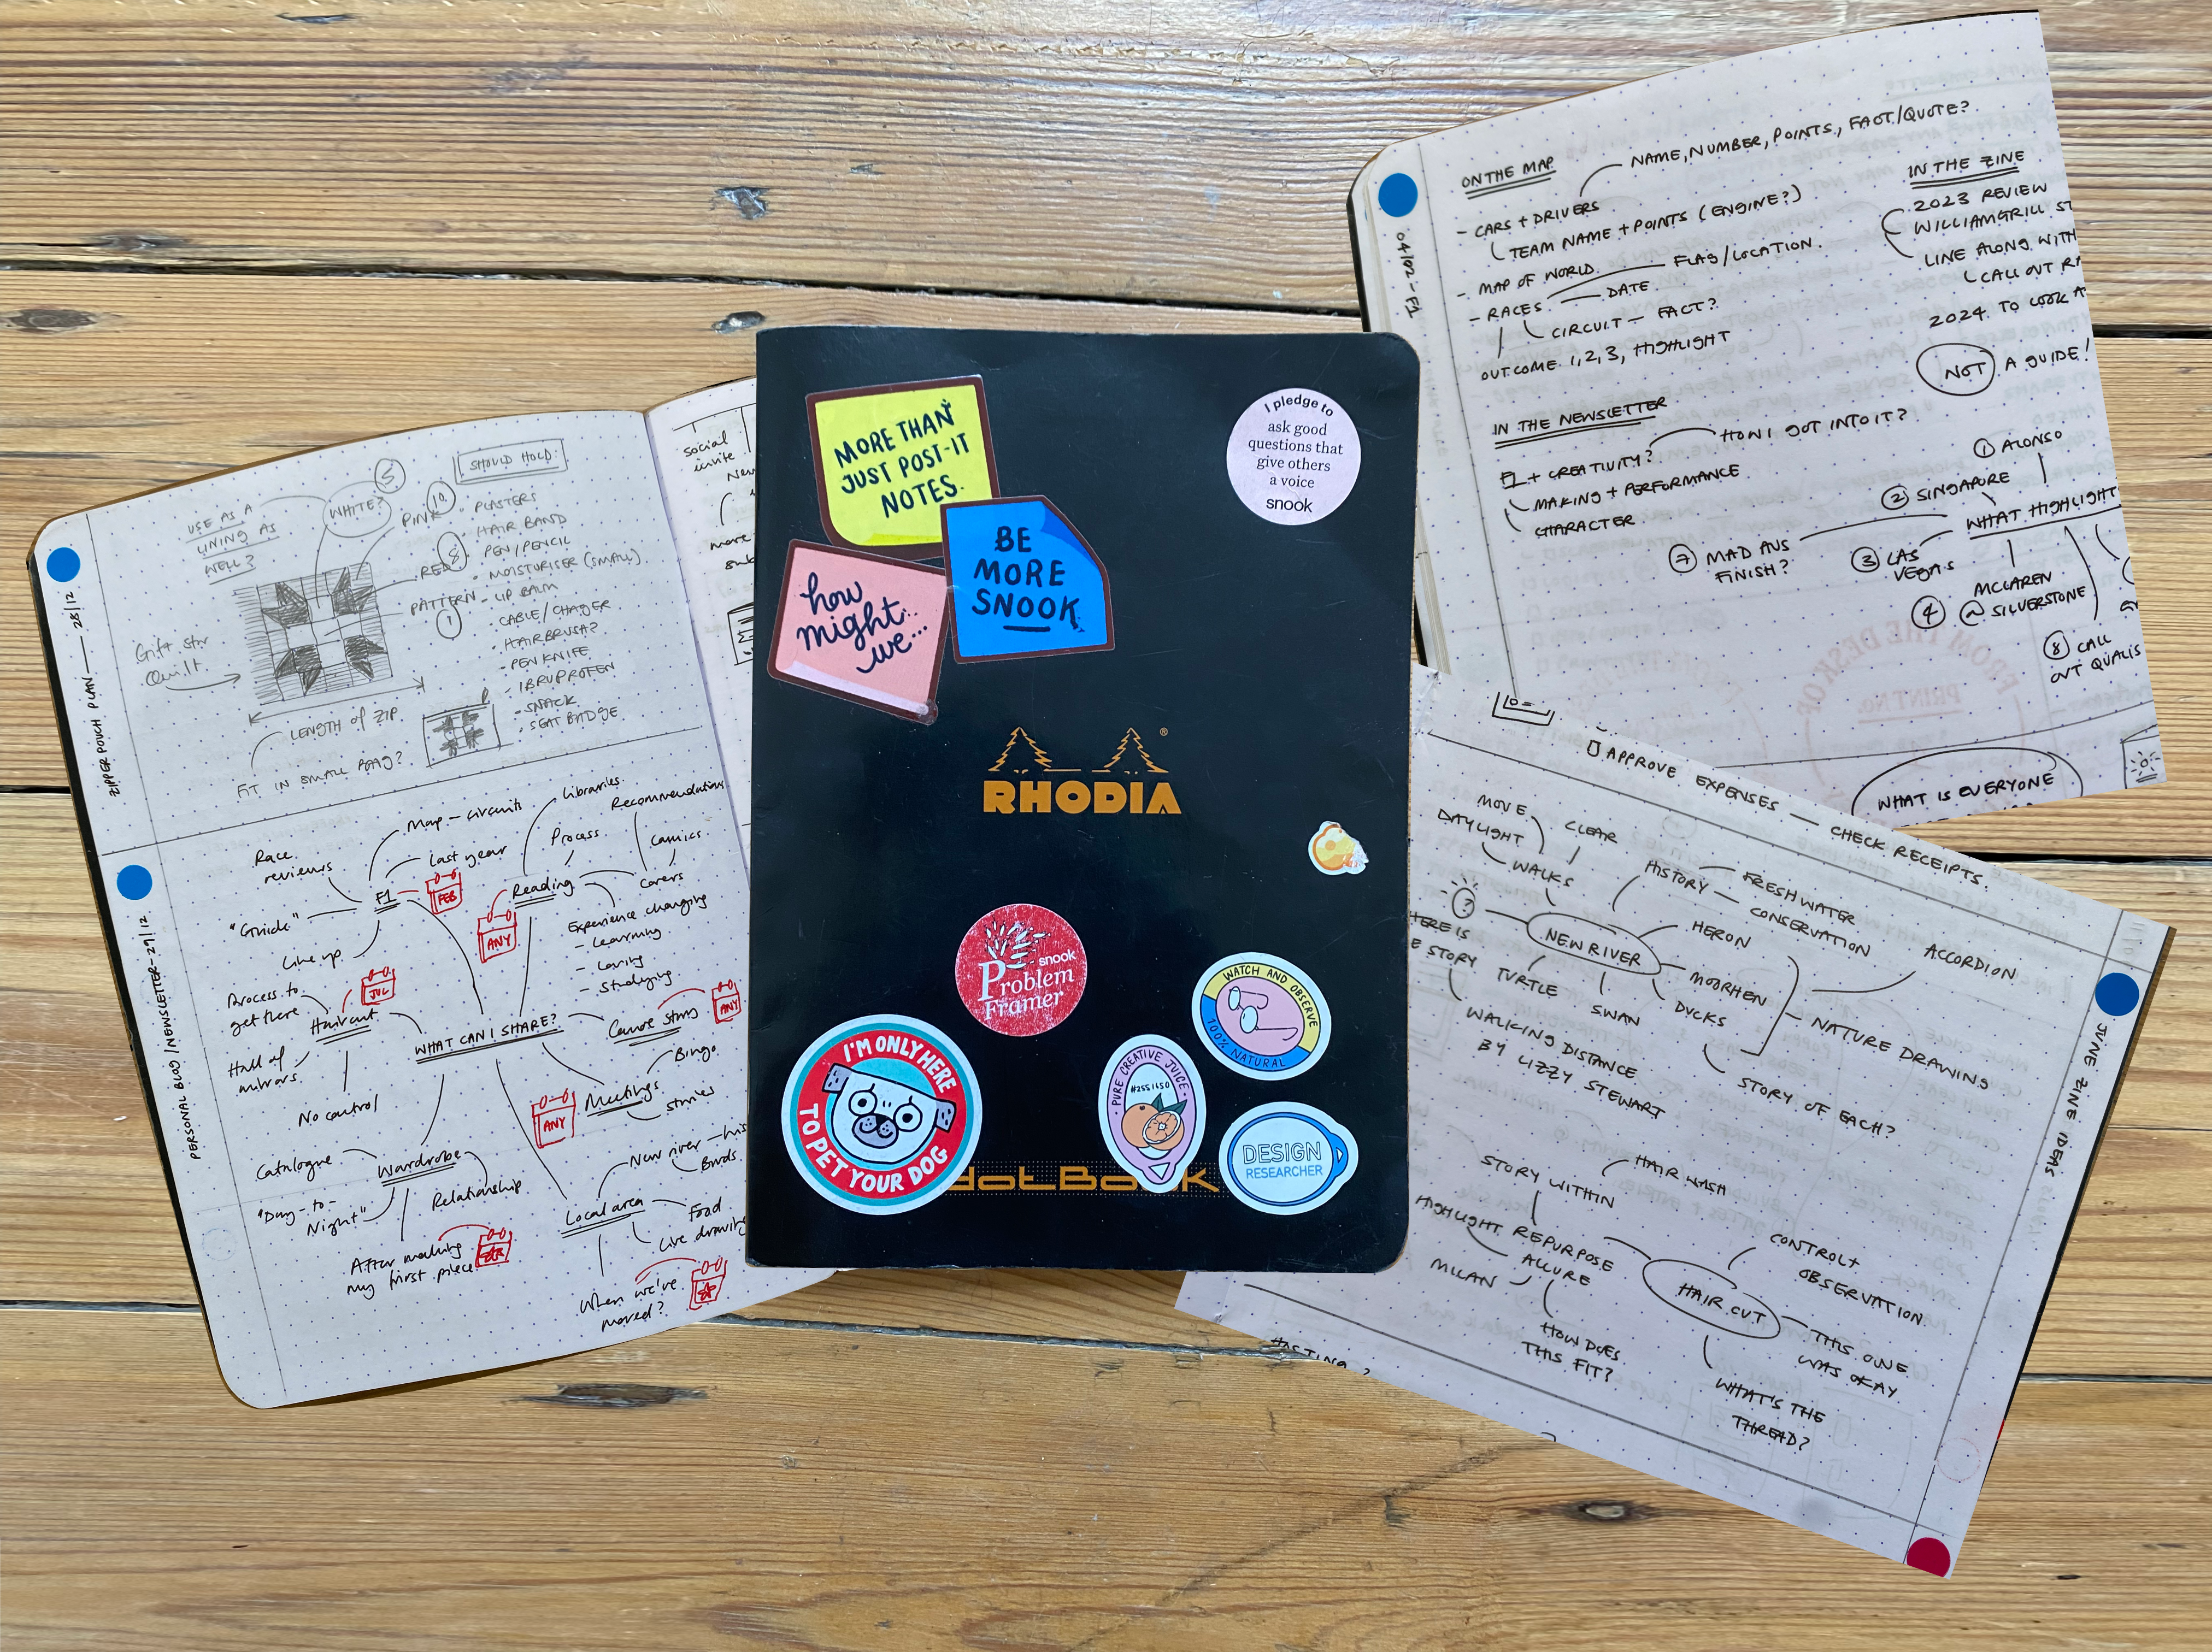 ZIPPER POUCH PLAN — 28/12
USE AS A
LINING AS
WELL?
WHITE?
5
SHOULD HOLD:
PINK
10
RED
8
PATTERN
1
- PLASTERS
- HAIR BAND
- PEN/PENCIL
- MOISTURISER (SMALL)
- LIP BALM
- CABLE/CHAGER
HAIRBRUSH?
- PEN KNIFE
- IBRUPROFEN
- SNACK
- SEAT BADGE
Gift star
Quilt
LENGTH of ZIP.
FIT IN SMALL BAG?
social
invite
more
PERSONAL BLOG / NEWSLETTER - 29/12
Map - circuits
Race
reviews
Last year
F1
FEB
"Guide"
Line up
Libraries
Recommendations
Process
Comics
Reading
ANY
Covers
Experience changing
- Learning
- Loving
- Studying
Process to
get there
JUL
Haircut
Hall of
mirrors
No control
WHAT CAN I SHARE?
ANY
Bingo
Meetings
ANY
Stories
Catalogue
Wardrobe
"Day-to-
Night"
Relationship
After making
my first piece
New river - his
Birds
Local area
Food
Live drawing
When we've
moved?
MORE THAN
JUST POST-IT
NOTES.
BE
MORE
SNOOK
how
might
we...
I pledge to
ask good
questions that
give others
a voice
snook
RHODIA
®
snook
Problem
Framer
WATCH AND OBSERVE
100% NATURAL
I'M ONLY HERE
TO PET YOUR DOG
PURE CREATIVE JUICE
#2551650
DESIGN
RESEARCHER
dotBook
04/02 - F1
ON THE MAP
NAME, NUMBER, POINTS, FACT/QUOTE?
- CARS + DRIVERS
TEAM NAME + POINTS (ENGINE?)
- MAP OF WORLD
FLAG/LOCATION
- RACES
DATE
CIRCUIT - FACT?
OUTCOME 1, 2, 3, HIGHLIGHT
IN THE ZINE
2023 REVIEW
WILLIAM GRILL ST
LINE ALONG WITH
CALL OUT RA
2024 TO LOOK A
NOT A GUIDE!
IN THE NEWSLETTER
HOW I GOT INTO IT?
F1 + CREATIVITY?
MAKING + PERFORMANCE
CHARACTER
1 ALONSO
2 SINGAPORE
WHAT HIGHLIGHT
7 MAD AUS
FINISH?
3 LAS
VEGAS
MCLAREN
4 @ SILVERSTONE
8 CALL
OUT QUALIS
FROM THE DESK OF
PRINT NO.
WHAT IS EVERYONE
APPROVE EXPENSES — CHECK RECEIPTS.
JUNE ZINE IDEAS
MOVE
DAYLIGHT
CLEAR
WALKS
HISTORY
FRESHWATER
CONSERVATION
?
NEW RIVER
HERON
HERE IS
E STORY
TURTLE
SWAN
MOORHEN
DUCKS
ACCORDION
NATURE DRAWING
WALKING DISTANCE
BY LIZZY STEWART
STORY OF EACH?
STORY WITHIN
HAIR WASH
HIGHLIGHT REPURPOSE
ALLURE
MILAN
HOW DOES
THIS FIT?
CONTROL +
OBSERVATION
HAIR CUT
THIS ONE
WAS OKAY
WHAT'S THE
THREAD?
HOSTING?